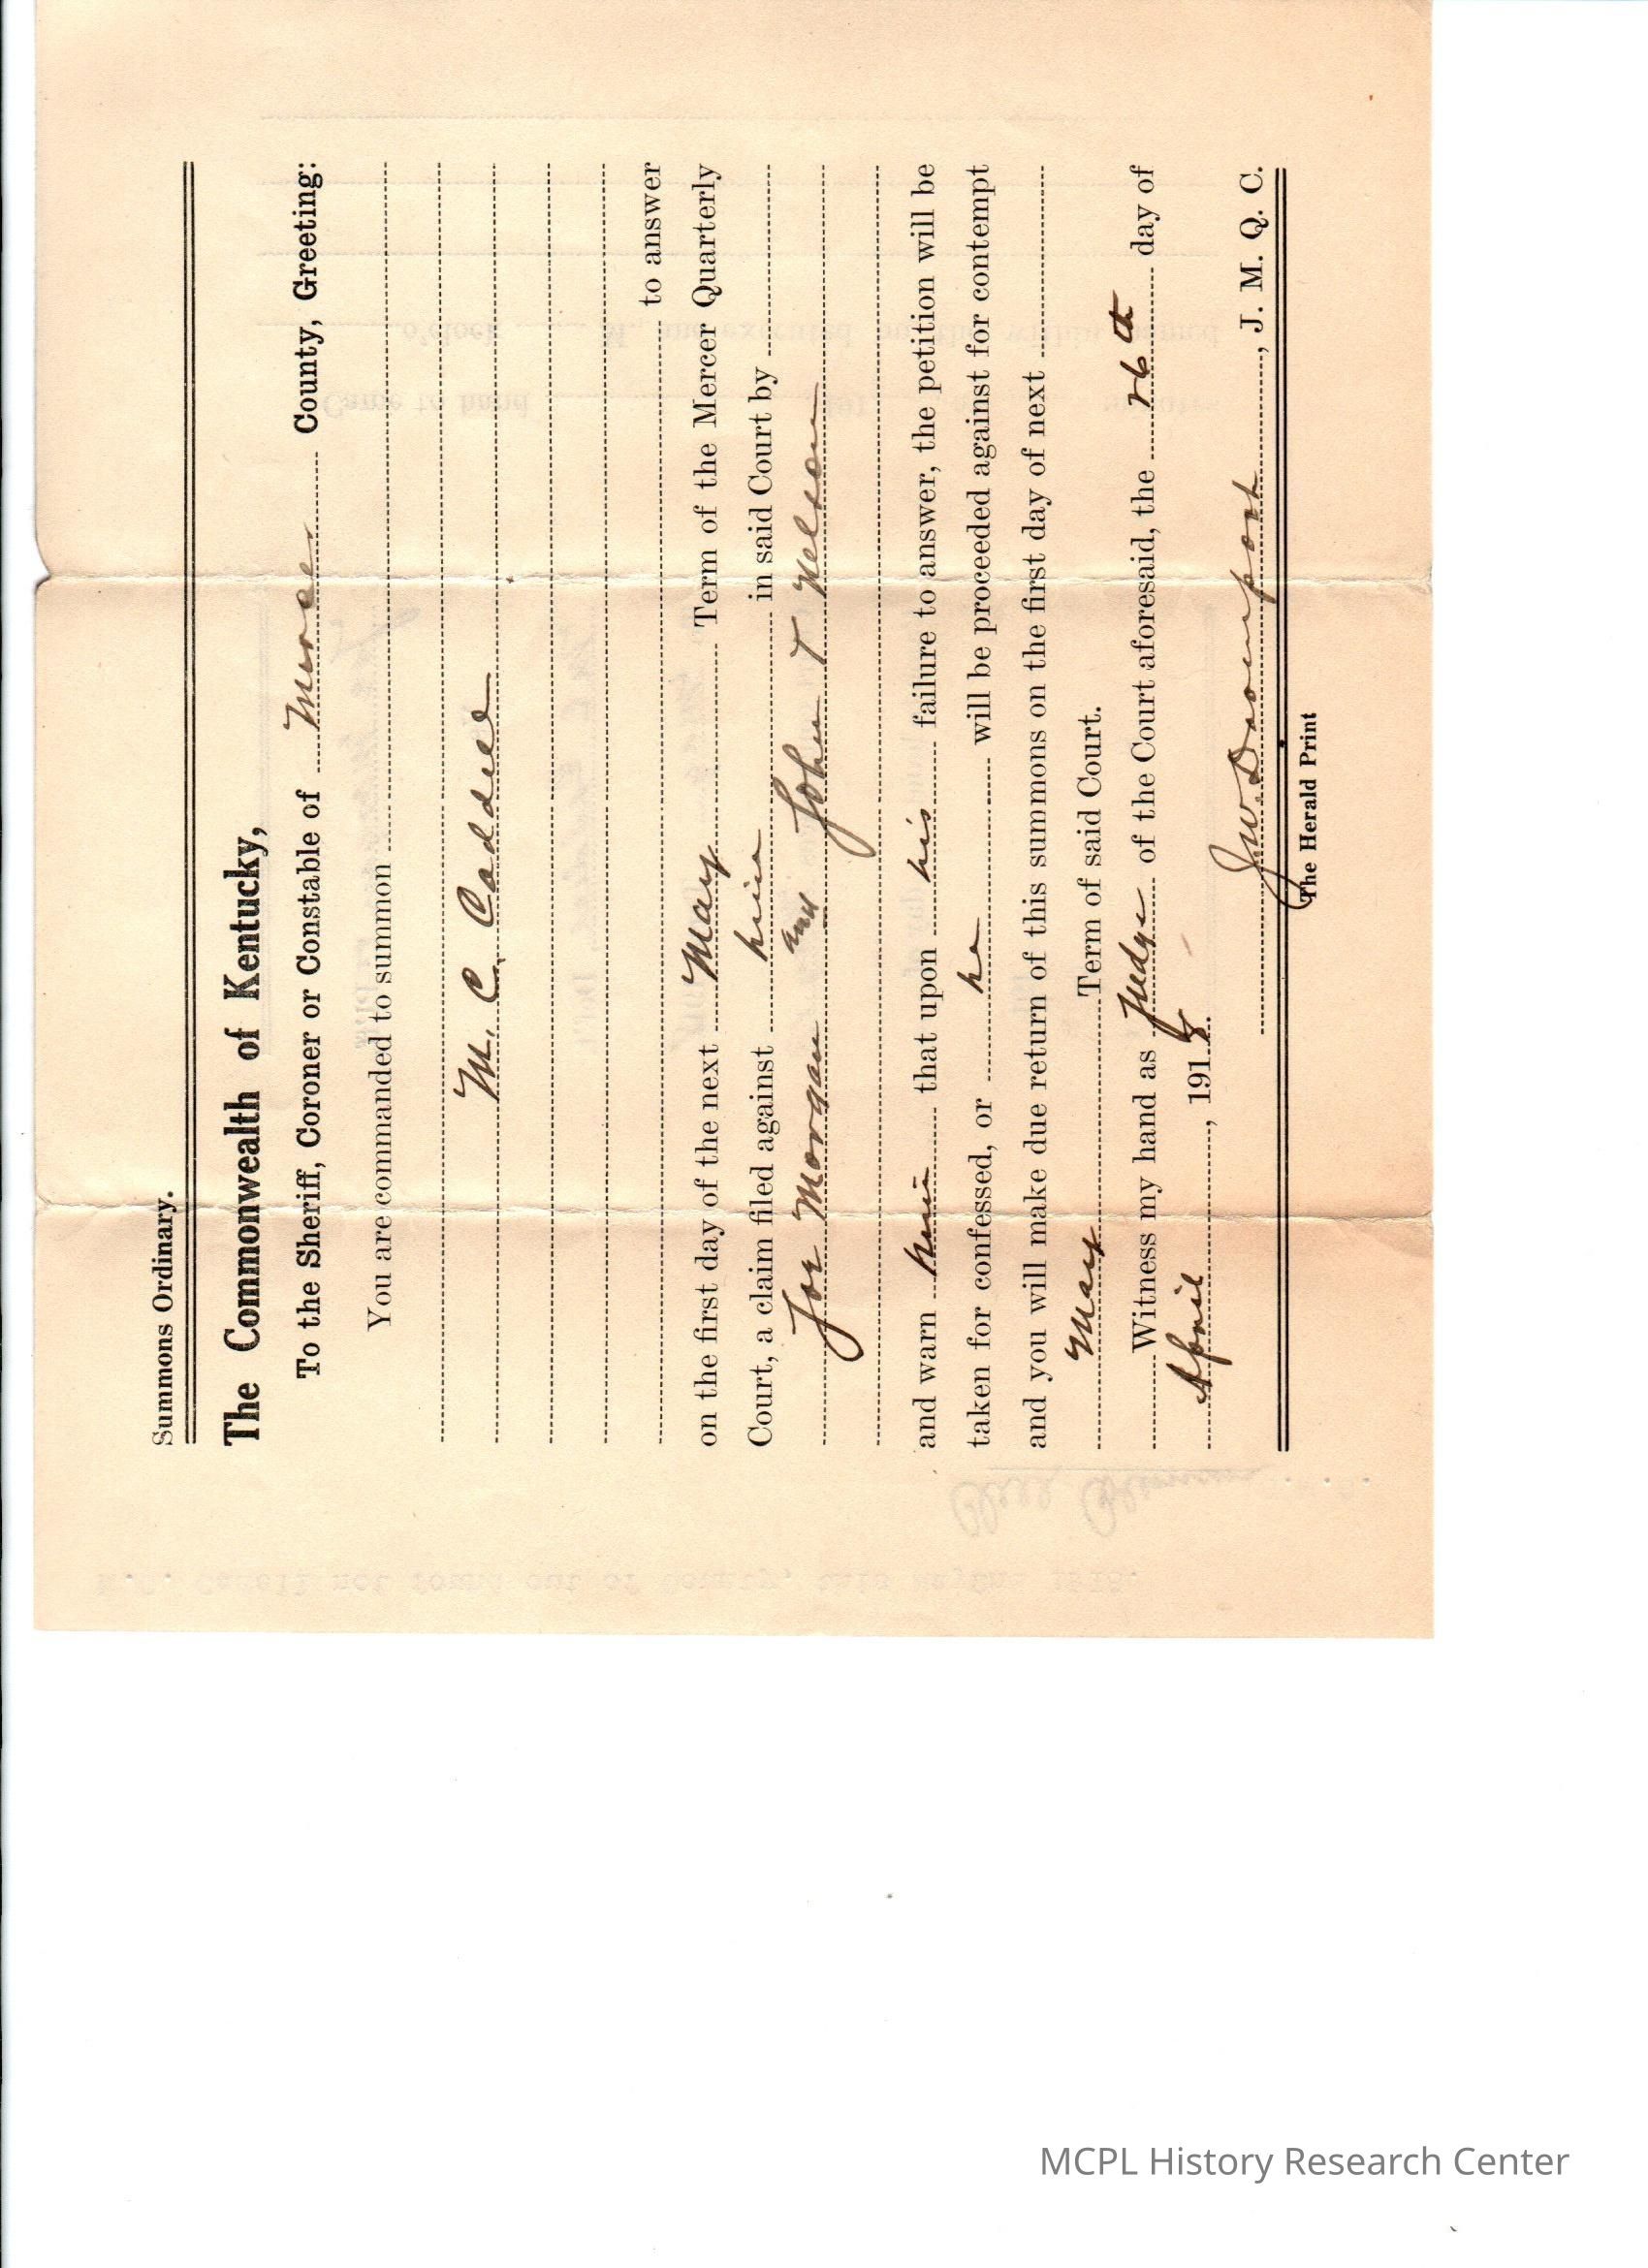 Summons Ordinary.
The Commonwealth of Kentucky,
To the Sheriff, Coroner or Constable of Mercer County, Greeting:
You are commanded to summon
M. C. Caddell
to answer
on the first day of the next May Term of the Mercer Quarterly
Court, a claim filed against him in said Court by
Joe Morgan and John T Nelson
and warn him that upon his failure to answer, the petition will be
taken for confessed, or he will be proceeded against for contempt
and you will make due return of this summons on the first day of next
May Term of said Court.
Witness my hand as Judge of the Court aforesaid, the 26th day of
April, 1918.
J.W. Davenport, J. M. Q. C.
The Herald Print
MCPL History Research Center